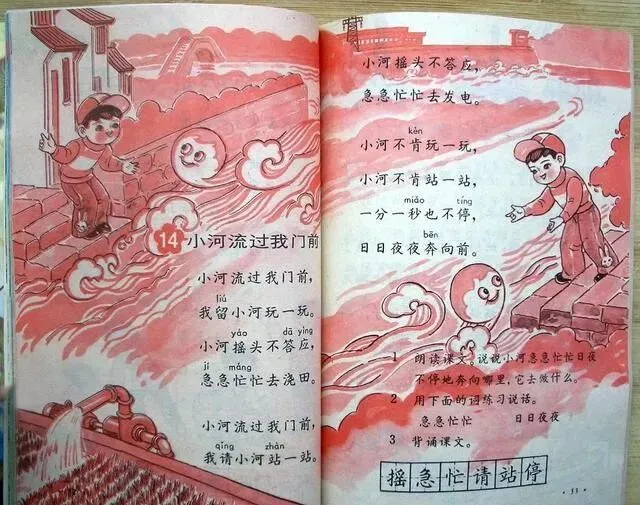 14 小河流过我门前
小河流过我门前,
liú
我留小河玩一玩。
yáo dā yìng
小河摇头不答应,
jí máng
急急忙忙去浇田。
小河流过我门前,
qǐng zhàn
我请小河站一站。
小河摇头不答应,
急急忙忙去发电。
kěn
小河不肯玩一玩,
小河不肯站一站,
miǎo tíng
一分一秒也不停,
bēn
日日夜夜奔向前。
1 朗读课文。说说小河急急忙忙日夜
不停地奔向哪里,它去做什么。
2 用下面的词练习说话。
急急忙忙 日日夜夜
3 背诵课文。
摇急忙请站停
· 33 ·